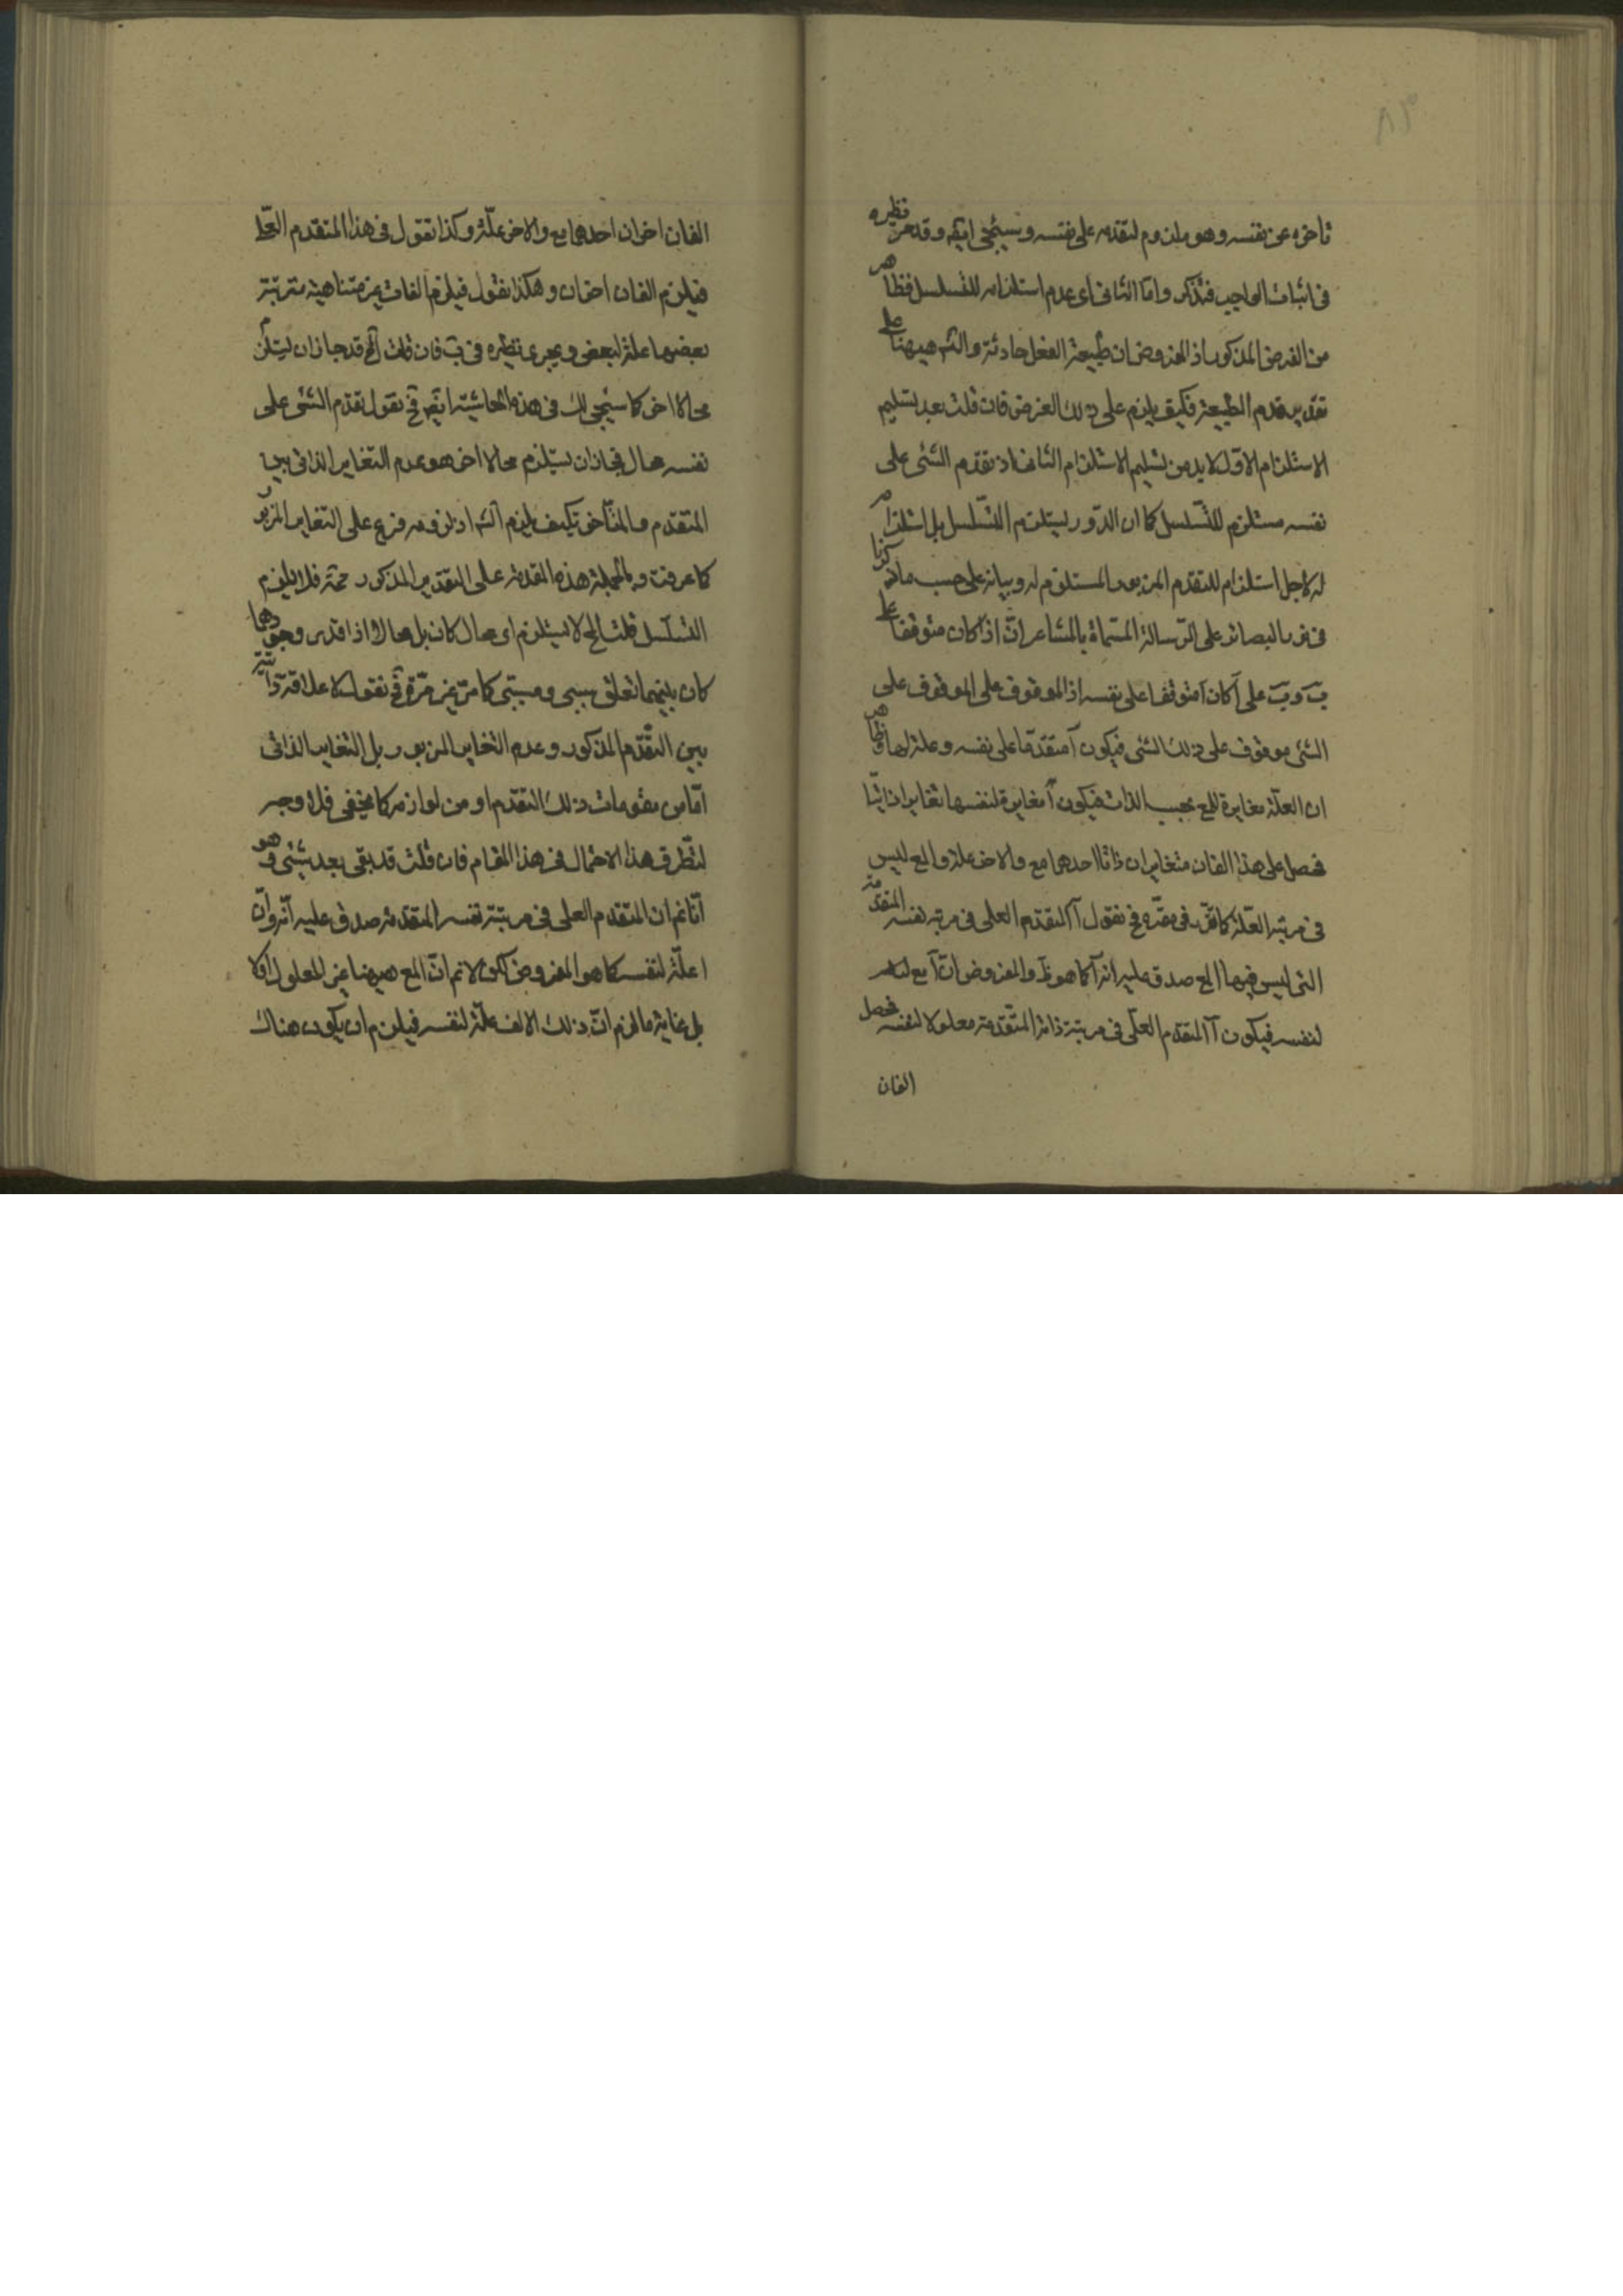 تاخره عن نفسه وهو ملزوم لتقدمه على نفسه وسيجئ ايضا وقد مر نظيره
فى اثبات الواجب فتذكر واما الثانى اى عدم استلزامه للتسلسل فظاهر
من الفرض المذكور اذ المفروض ان طبيعة الفعل حادثة والتسه هيهنا على
تقدير قدم الطبيعة فكيف يلزم على ذلك الفرض فان قلت بعد تسليم
الاستلزام الاول لابد من تسليم الاستلزام الثانى اذ تقدم الشئ على
نفسه مستلزم للتسلسل كما ان الدور يستلزم التسلسل بل استلزامه
له لاجل استلزام للتقدم المزبور المستلزم له وبيانه على حسب ما ذكرنا
فى نور البصائر على الرسالة المسماة بالمشاعر ان آ اذا كان متوقفا على
ب وب على آ كان آ متوقفا على نفسه اذ الموقوف على الموقوف على
الشئ موقوف على ذلك الشئ فيكون آ متقدما على نفسه وعلة لها وظاهر
ان العلة مغايرة للمع بحسب الذات فيكون آ مغايرة لنفسها تغايرا ذاتيا
فحصل على هذا الفان متغايران ذاتا احدهما مع والاخر علة والمع ليس
فى مرتبة العلة كما تقرر فى مقره فح نقول آ المتقدم العلى فى مرتبة نفسه المتقدمة
التى ليس فيها المع صدق عليه انه آ كما هو ظ والمفروض ان آ مع
لنفسه فيكون آ المتقدم العلى فى مرتبة ذاته المتقدمة معلولا لنفسه فحصل
الفان
الفان اخران احدهما مع والاخر علة وكذا نقول فى هذا المتقدم العلى
فيلزم الفان اخران وهكذا نقول فيلزم الفات غير متناهية مترتبة
بعضها علة لبعض ويجرى نظيره فى ب فان قلت المح قد جاز ان يستلزم
محالا اخر كما سيجئ لك فى هذه الحاشية ايضا فح نقول تقدم الشئ على
نفسه محال فجاز ان يستلزم محالا اخر هو عدم التغاير الذاتى بين
المتقدم والمتاخر فكيف يلزم التسه اذ لزومه فرع على التغاير المزبور
كما عرفت وبالجملة هذه المقدمة على التقدير المذكور محمة فلا يلزم
التسلسل قلت المح لا يستلزم اى محال كان بل محالا اذا قدر وجودهما
كان بينهما تعلق سببى ومسببى كما مر غير مرة فح نقول لا علاقة ذاتية
بين التقدم المذكور وعدم التغاير المزبور بل التغاير الذاتى
اما من مقومات ذلك التقدم او من لوازمه كما يخفى فلا وجه
لتطرق هذا الاحتمال فى هذا المقام فان قلت قد بقى بعد شئ وهو
انا نم ان المتقدم العلى فى مرتبة نفسه المتقدمة صدق عليه آ انه وان
آ علة لنفسه كما هو المفروض لكن لا نم ان المع هيهنا غير المعلول اولا
بل غاية ما لزم ان ذلك الالف علة لنفسه فيلزم ان يكون هناك